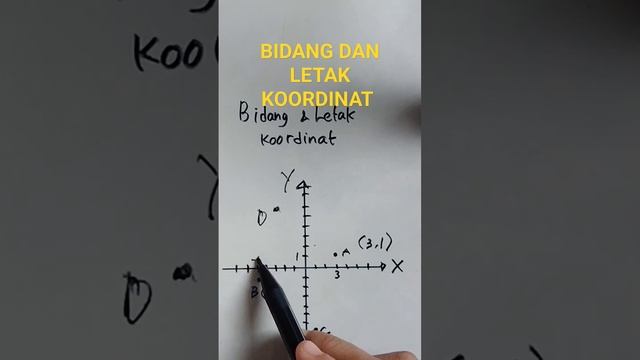 BIDANG DAN
LETAK
KOORDINAT
Bidang & Letak
Koordinat
Y
D
1
A
(3,1)
3
X
B